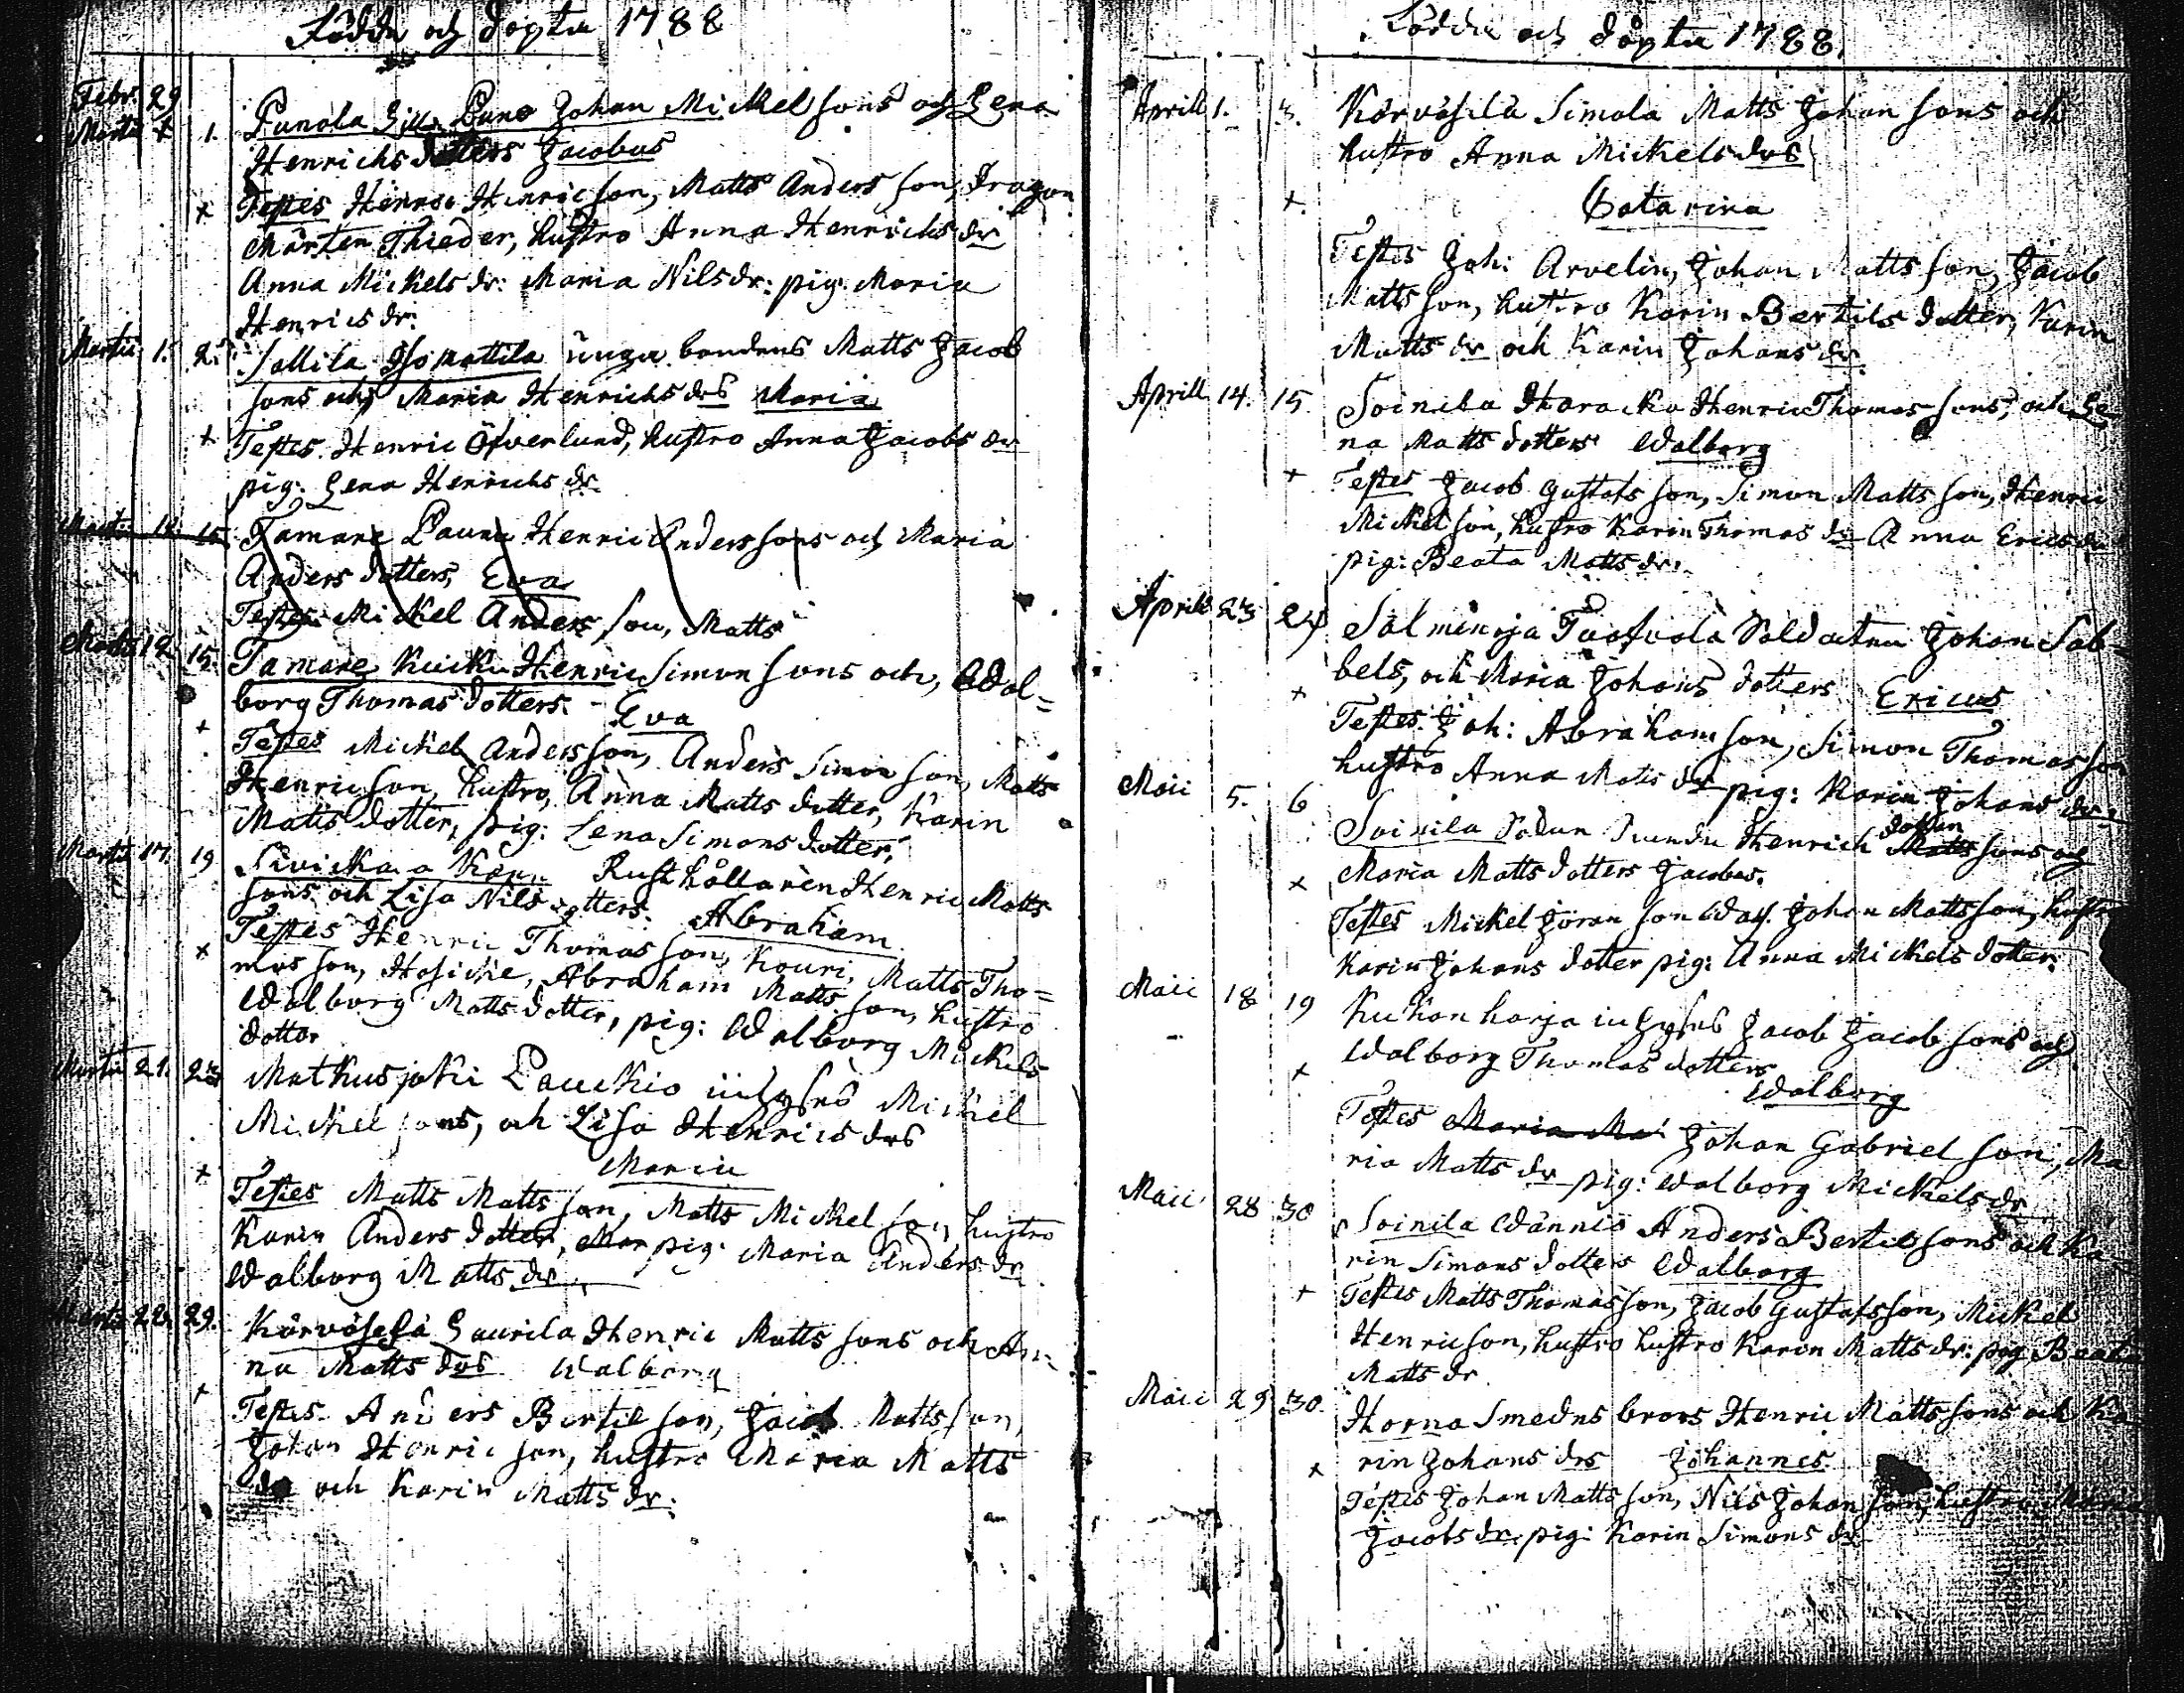 Födde och döpta 1788
Febr. 29
Martii 1. Punola Johan Mickelsons och Lena
Henrichs dotters Jacobus
Testes Henric Henricson, Matts Andersson, Dragon
Mårten Thieder, hustro Anna Henrichs dr
Anna Mickels dr: Maria Nils dr: pig. Maria
Henrics dr:
Martii 1. 2. Sallila Isomattila unga bondens Matts Jacob
sons och Maria Henrichs drs Maria
Testes Henric Öfverlund, hustro Anna Jacobs dr
pig: Lena Henrichs dr
15. Tamare Pauna Henric Anderssons och Maria
Anders dotters, Eva
Testes Mickel Andersson, Matts
15. Tamare Henric Simonsons och, Wal=
borg Thomas dotters. Eva
Testes Mickel Andersson, Anders Simonson, Matts
Henricson, hustro, Anna Matts dotter, Karin
Matts dotter, pig: Lena Simons dotter,
Martii 17. 19 Rusthållaren Henric Matts
sons och Lisa Nils dotters. Abraham
Testes Henric Thomasson, Kouri, Matts Tho=
masson, Abraham Mattsson, hustro
Walborg Matts dotter, pig: Walborg Mickels
dotter
Martii 21. Matkusjoki Mickel
Mickelsons, och Lisa Henrics drs
Maria
Testes Matts Mattsson, Matts Mickelson, hustro
Karin Anders dotter, Mar pig: Maria Anders dr
Walborg Matts dr
29. Laurila Henric Mattssons och An=
na Matts drs Walborg
Testes Anders Bertilson, Jacob Mattsson,
Johan Henricson, hustro Maria Matts
dr och Karin Matts dr:
Födde och döpta 1788.
Aprill 1. 3. Simola Matts Johansons och
hustro Anna Mickels drs
Catarina
Testes Joh: Arvelin, Johan Mattsson, Jacob
Mattsson, hustro Karin Bertils dotter, Karin
Matts dr och Karin Johans dr
Aprill 14. 15. Soinila Haracka Henric Thomassons, och Le
na Matts dotters Walborg
Testes Jacob Gustafsson, Simon Mattsson, Henric
Mickelson, hustro Karin Thomas dr Anna Erics dr
pig: Beata Matts dr.
Aprill 23 24 Soldaten Johan Sab-
bels, och Maria Johans dotters Ericus
Testes Joh: Abrahamson, Simon Thomasson
hustro Anna Matts dr pig: Karin Johans dr:
Maii 5. 6 Soinila Henrich Matts sons och
Maria Matts dotters Jacobus.
Testes Mickel Jöranson Johan Mattsson, hustr
Karin Johans dotter pig: Anna Mickels dotter.
Maii 18 19 Kukonharja inhyses Jacob Jacobsons och
Walborg Thomas dotters
Walborg
Testes Maria Ma Johan Gabrielson, Ma
ria Matts dr pig: Walborg Mickels dr
Maii 28 30 Soinila Wänniö Anders Bertilsons och Ka
rin Simons dotters Walborg
Testes Matts Thomasson, Jacob Gustafsson, Mickel
Henricson, hustro hustro Karin Matts dr: pig Beata
Matts dr
Maii 29 30. Horna Smedns brors Henric Mattssons och Ka
rin Johans drs Johannes
Testes Johan Mattsson, Nils Johanson, hustro Maria
Jacobs dr. pig: Karin Simons dr